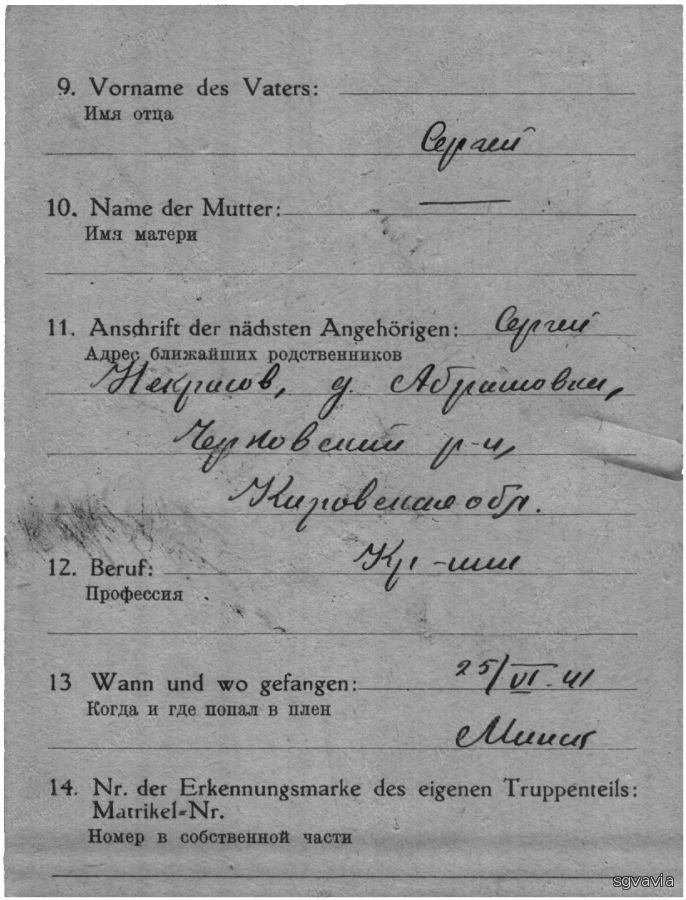 9. Vorname des Vaters:
Имя отца
Сергей
10. Name der Mutter: —
Имя матери
11. Anschrift der nächsten Angehörigen: Сергей
Адрес ближайших родственников
Некрасов, д. Абрамовка,
Черновский р-н,
Кировская обл.
12. Beruf: Кр-нин
Профессия
13 Wann und wo gefangen: 25/VI-41
Когда и где попал в плен
Минск
14. Nr. der Erkennungsmarke des eigenen Truppenteils:
Matrikel=Nr.
Номер в собственной части
sgvavia